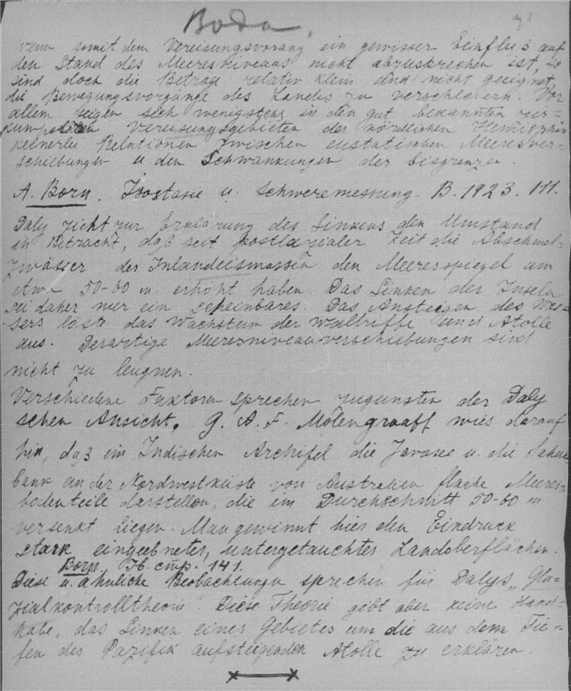 Вода
wenn somit dem Vereisungsvorgang ein gewisser Einfluß auf
den Stand des Meeresniveaus nicht abzusprechen ist, so
sind doch die Beträge relativ klein und nicht geeignet,
die Bewegungsvorgänge des Landes zu verschleiern. Vor
allem zeigen sich wenigstens in den gut bekannten
Vereisungsgebieten der nördlichen Hemisphäre
keinerlei Relationen zwischen eustatischen Meeresver-
schiebungen u den Schwankungen der Eisgrenzen.
A. Born. Isostasie u. Schweremessung. B. 1923. 111.
Daly zieht zur Erklärung des Sinkens den Umstand
in Betracht, daß seit postglazialer Zeit die Abschmel-
zwässer der Inlandeismassen den Meeresspiegel um
etwa 50-60 m. erhöht haben. Das Sinken der Inseln
sei daher nur ein scheinbares. Das Ansteigen des Was-
sers löste das Wachstum der Wallriffe und Atolle
aus. Derartige Meeresniveauverschiebungen sind
nicht zu leugnen.
Verschiedene Faktoren sprechen zugunsten der Daly
schen Ansicht. G. A. F. Molengraaff wies darauf
hin, daß im Indischen Archipel die Javasee u. die Sahul
bank an der Nordwestküste von Australien flache Meeres-
bodenteile darstellen, die im Durchschnitt 50-60 m
versenkt liegen. Man gewinnt hier den Eindruck
stark eingeebneter, untergetauchter Landoberflächen.
Born, стр. 141.
Diese u. ähnliche Beobachtungen sprechen für Dalys „Gla-
zialkontrolltheorie". Diese Theorie gibt aber keine Hand-
habe, das Sinken eines Gebietes um die aus dem Tie-
fen des Pazifik aufsteigenden Atolle zu erklären.